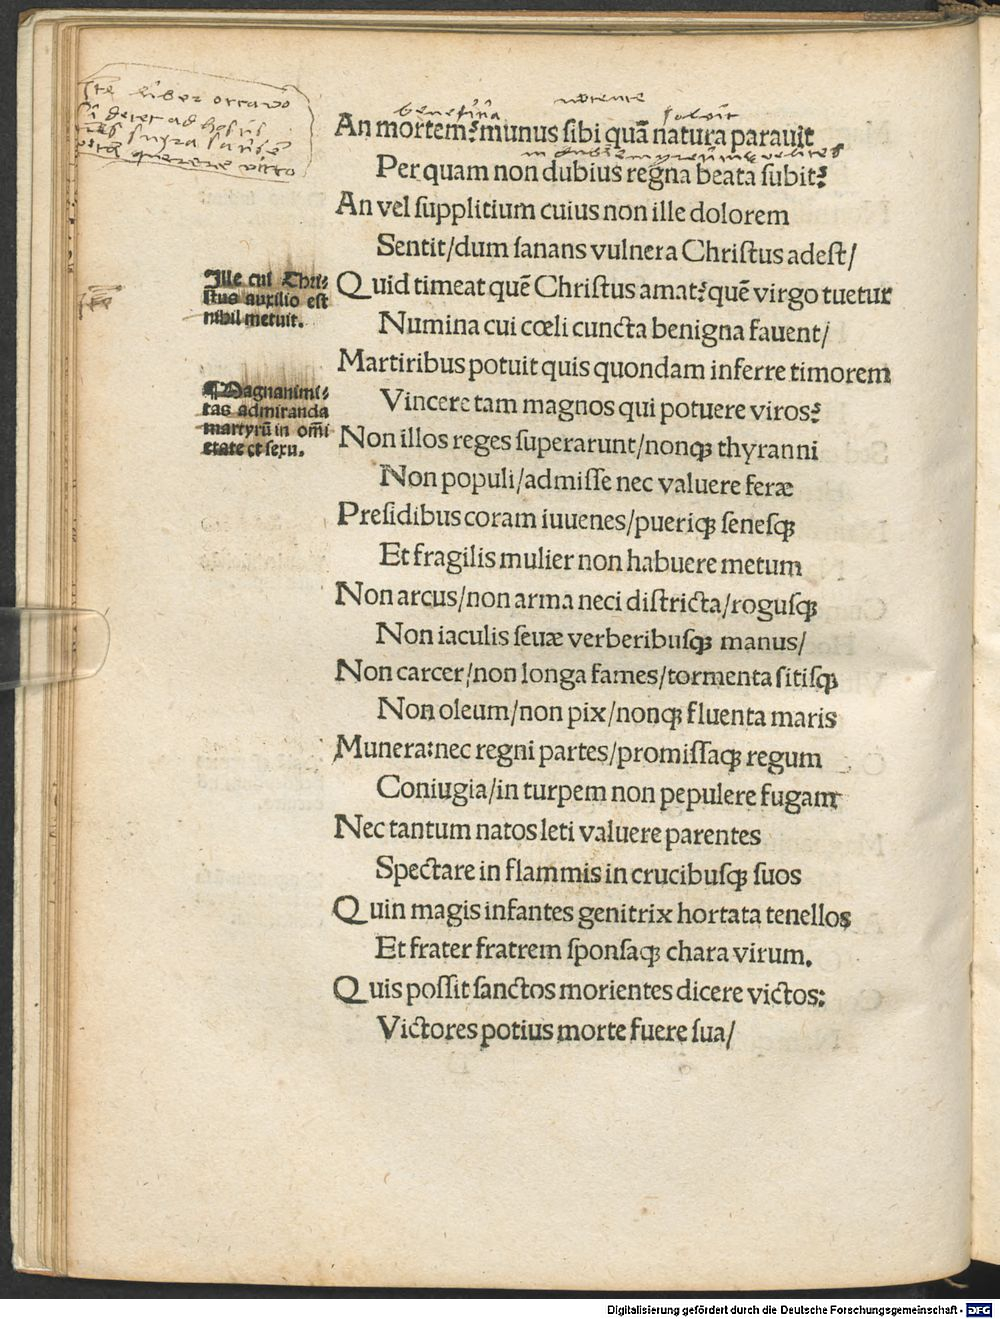 An mortem? munus ſibi quã natura parauit
Per quam non dubius regna beata ſubit?
An vel ſupplitium cuius non ille dolorem
Sentit/dum ſanans vulnera Chriſtus adeſt/
Quid timeat quẽ Chriſtus amat? quẽ virgo tuetur
Numina cui cœli cuncta benigna fauent/
Martiribus potuit quis quondam inferre timorem
Vincere tam magnos qui potuere viros?
Non illos reges ſuperarunt/nonqꝫ thyranni
Non populi/admiſſe nec valuere feræ
Preſidibus coram iuuenes/pueriqꝫ ſeneſqꝫ
Et fragilis mulier non habuere metum
Non arcus/non arma neci diſtricta/roguſqꝫ
Non iaculis ſeuæ verberibuſqꝫ manus/
Non carcer/non longa fames/tormenta ſitiſqꝫ
Non oleum/non pix/nonqꝫ fluenta maris
Munera:nec regni partes/promiſſaqꝫ regum
Coniugia/in turpem non pepulere fugam
Nec tantum natos leti valuere parentes
Spectare in flammis in crucibuſqꝫ ſuos
Quin magis infantes genitrix hortata tenellos
Et frater fratrem ſponſaqꝫ chara virum.
Quis poſſit ſanctos morientes dicere victos:
Victores potius morte fuere ſua/
Ille cui Chri⸗
ſtus auxilio eſt
nihil metuit.
¶Magnanimi⸗
tas admiranda
martyrũ in om̃i
etate et ſexu.
Digitalisierung gefördert durch die Deutsche Forschungsgemeinschaft - DFG